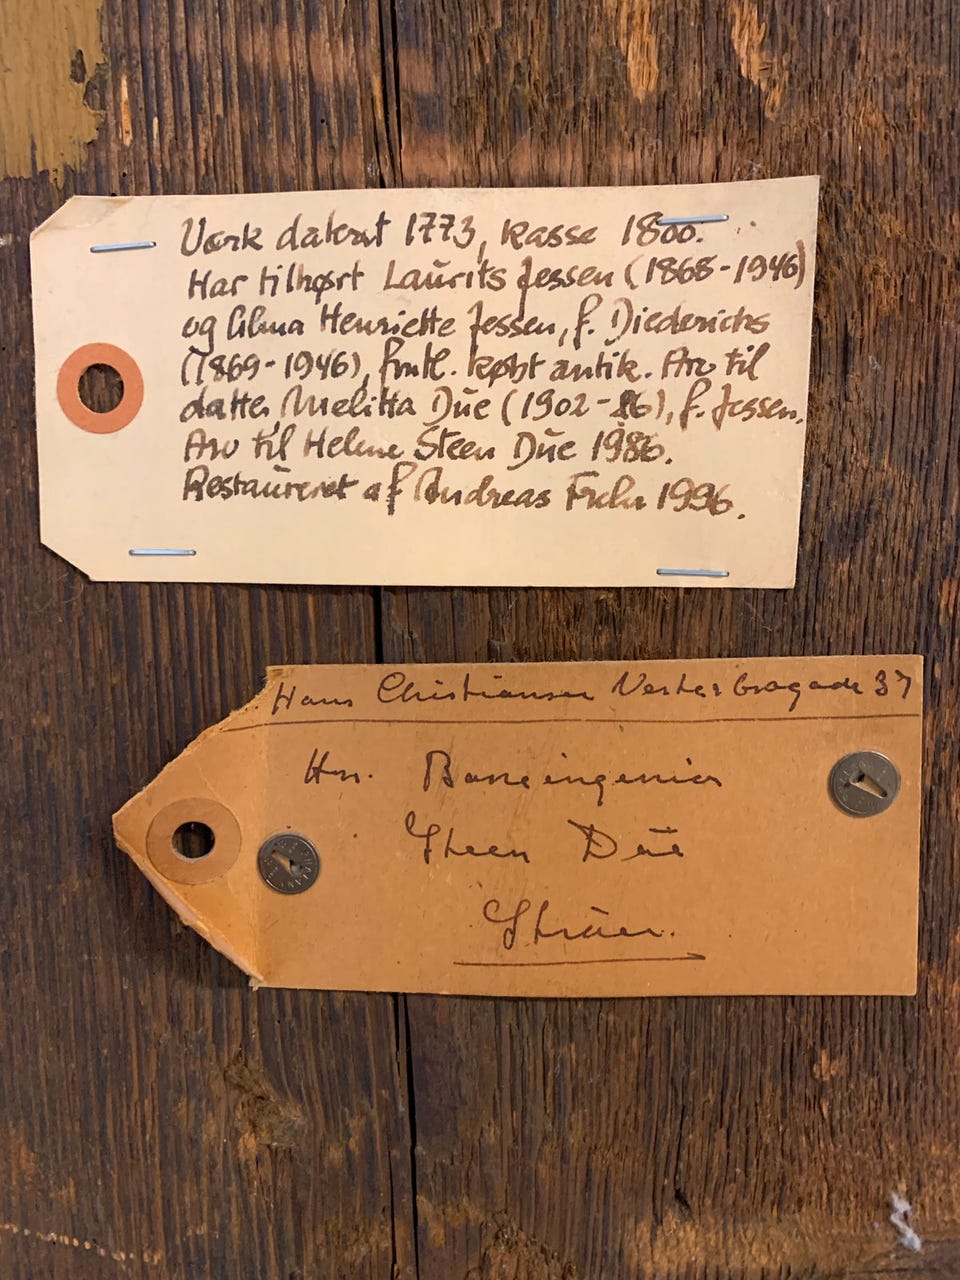 Værk dateret 1773, kasse 1800.
Har tilhørt Laurits Jessen (1868-1946)
og Alma Henriette Jessen, f. Diederichs
(1869-1946), fmtl. købt antik. Arv til
datter Melitta Düe (1902-86), f. Jessen.
Arv til Helene Steen Düe 1986.
Restaureret af Andreas 1996.
Hans Christiansen Vesterbrogade 37
Hr. Baneingeniør
Steen Düe
Struer.